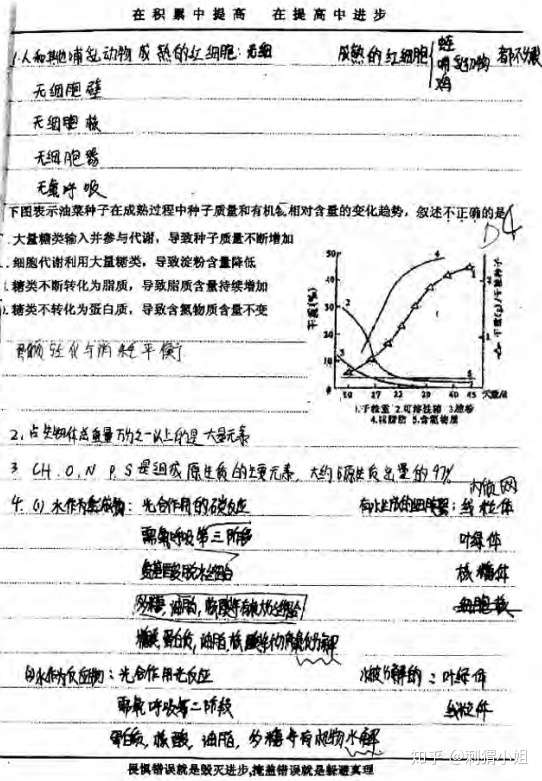 在积累中提高 在提高中进步
1.人和其他哺乳动物成熟的红细胞:无细 成熟的红细胞{蛙 鸡 都不分裂
无细胞壁
无细胞核
无细胞器
无氧呼吸
下图表示油菜种子在成熟过程中种子质量和有机物相对含量的变化趋势,叙述不正确的是
D
大量糖类输入并参与代谢,导致种子质量不断增加
细胞代谢利用大量糖类,导致淀粉含量降低
糖类不断转化为脂质,导致脂质含量持续增加
糖类不转化为蛋白质,导致含氮物质含量不变
干重(%)
50
40
30
20
10
0
10 27 22 29 40 45 天数/d
1.千粒重 2.可溶性糖 3.淀粉
4.粗脂肪 5.含氮物质
2.占生物体总重量万分之一以上的是大量元素
3 C H.O.N P.S是组成原生质的主要元素,大约占原生质总量的97%
内质网
4.(1)水作为生成物:光合作用的碳反应 有水生成的细胞器:线粒体
需氧呼吸第三阶段 叶绿体
氨基酸脱水缩合 核糖体
多糖,油脂,核酸等有机物的合成 细胞核
(2)水作为反应物:光合作用光反应 水被分解的:叶绿体
需氧呼吸第二阶段 线粒体
蛋白质,核酸,油脂,多糖等有机物水解
知乎 @刺猬小姐
畏惧错误就是毁灭进步,掩盖错误就是躲避真理